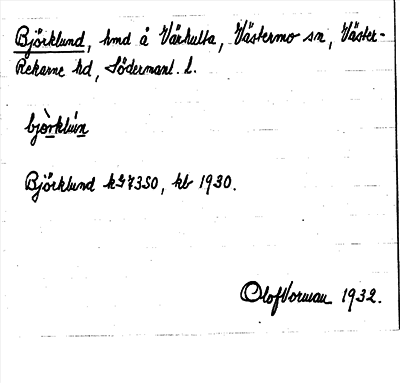 Björklund, hmd å Värhulta, Västermo sn, Väster-
Rekarne hd, Södermanl. l.
bjòrklún
Björklund 1930.
Olof Vorman 1932.